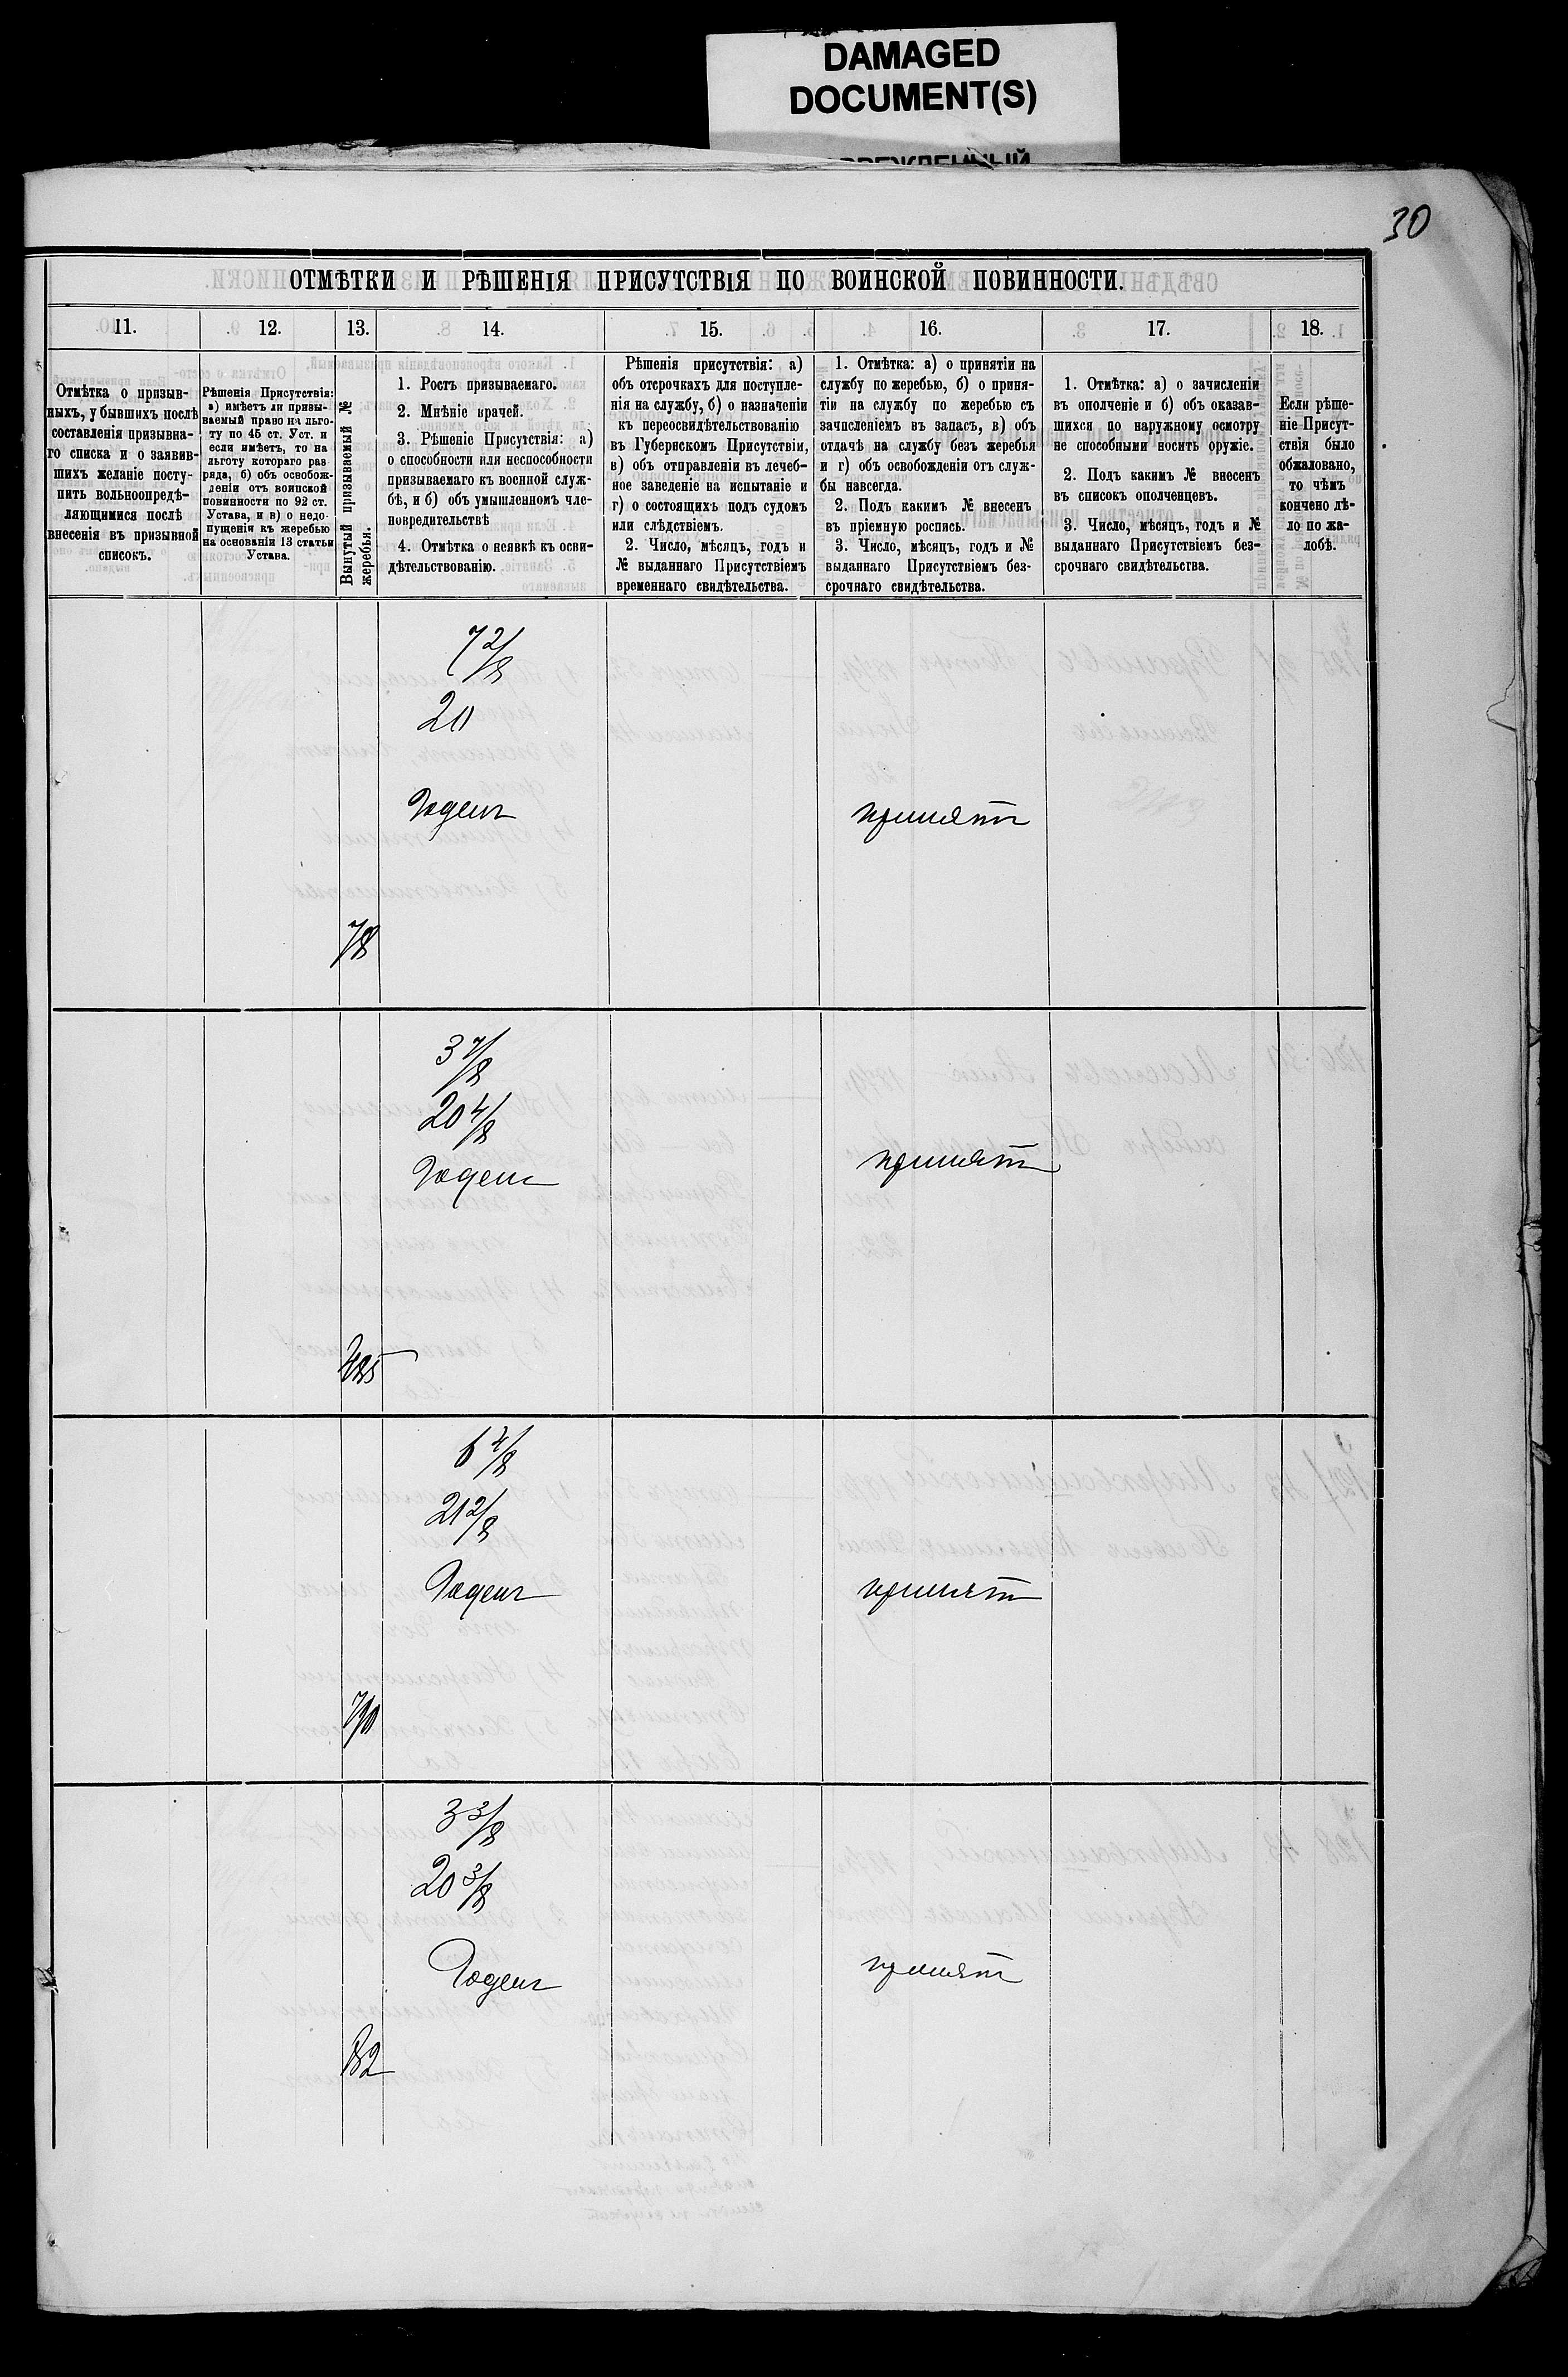 DAMAGED
DOCUMENT(S)
30
ОТМѢТКИ И РѢШЕНІЯ ПРИСУТСТВІЯ ПО ВОИНСКОЙ ПОВИННОСТИ.
11. 12. 13. 14. 15. 16. 17. 18.
Отмѣтка о призыв-
ныхъ, у бывшихъ послѣ
составленія призывна-
го списка и о заявив-
шихъ желаніе посту-
пить вольноопредѣ-
ляющимися послѣ
внесенія въ призывной
списокъ.
Рѣшенія Присутствія:
а) имѣетъ ли призы-
ваемый право на льго-
ту по 45 ст. Уст. и
если имѣетъ, то на
льготу котораго раз
ряда, б) объ освобож-
деніи отъ воинской
повинности по 92 ст.
Устава, и в) о недо-
пущеніи къ жеребью
на основаніи 13 статьи
Устава.
Вынутый призываемый №
жеребья.
1. Ростъ призываемаго.
2. Мнѣніе врачей.
3. Рѣшеніе Присутствія: а)
о способности или неспособности
призываемаго къ военной служ-
бѣ, и б) объ умышленномъ чле-
новредительствѣ
4. Отмѣтка о неявкѣ къ осви-
дѣтельствованію.
Рѣшенія присутствія: а)
объ отсрочкахъ для поступле-
нія на службу, б) о назначеніи
къ переосвидѣтельствованію
въ Губернскомъ Присутствіи,
в) объ отправленіи въ лечеб-
ное заведеніе на испытаніе и
г) о состоящихъ подъ судомъ
или слѣдствіемъ.
2. Число, мѣсяцъ, годъ и
№ выданнаго Присутствіемъ
временнаго свидѣтельства.
1. Отмѣтка: а) о принятіи на
службу по жеребью, б) о приня-
тіи на службу по жеребью съ
зачисленіемъ въ запасъ, в) объ
отдачѣ на службу безъ жеребья
и г) объ освобожденіи отъ служ-
бы навсегда.
2. Подъ какимъ № внесенъ
въ пріемную роспись.
3. Число, мѣсяцъ, годъ и №
выданнаго Присутствіемъ без-
срочнаго свидѣтельства.
1. Отмѣтка: а) о зачисленіи
въ ополченіе и б) объ оказав-
шихся по наружному осмотру
не способными носить оружіе.
2. Подъ какимъ № внесенъ
въ списокъ ополченцевъ.
3. Число, мѣсяцъ, годъ и №
выданнаго Присутствіемъ без-
срочнаго свидѣтельства.
Если рѣше-
ніе Присут-
ствія было
обжаловано,
то чѣмъ
кончено дѣ-
ло по жа-
лобѣ.
7 2/8
20
Годенъ принятъ
78
3 7/8
20 4/8
Годенъ принятъ
6 4/8
21 2/8
Годенъ принятъ
3 3/8
20 3/8
Годенъ принятъ